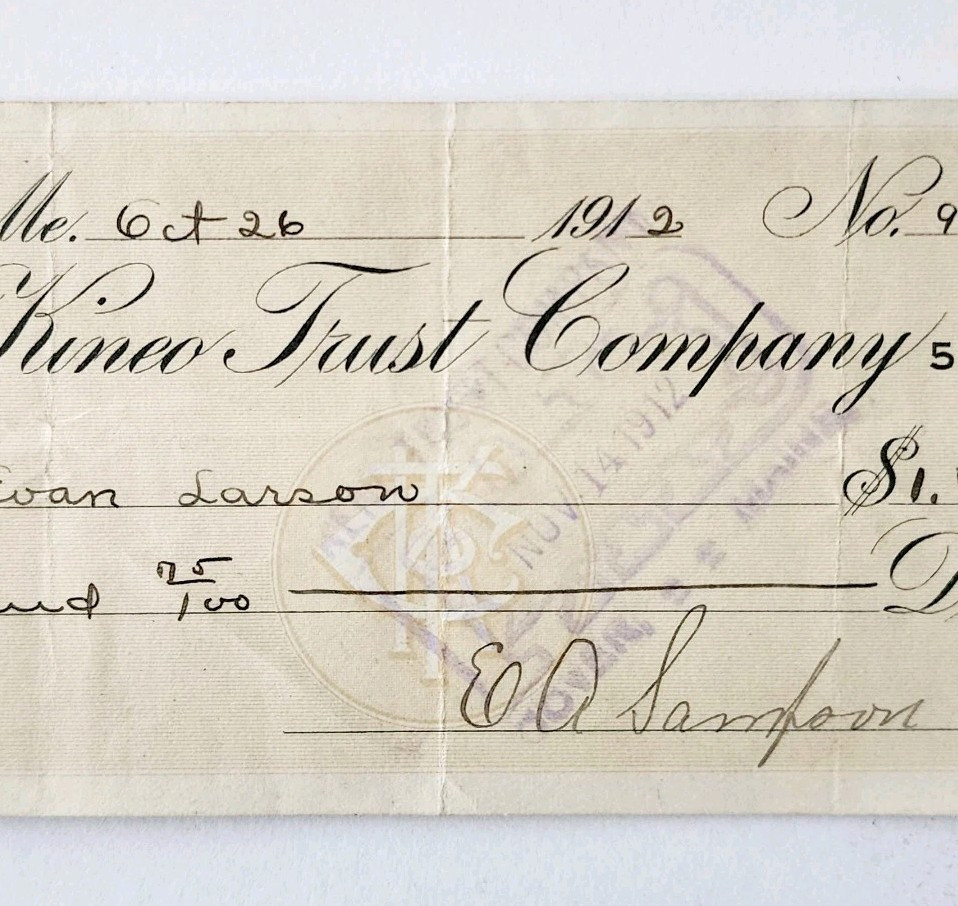 Me. Oct 26 1912 No. 9
Kineo Trust Company 5
Evan Larson $1.
and 75/100
E A Sampson
NOV 14 1912